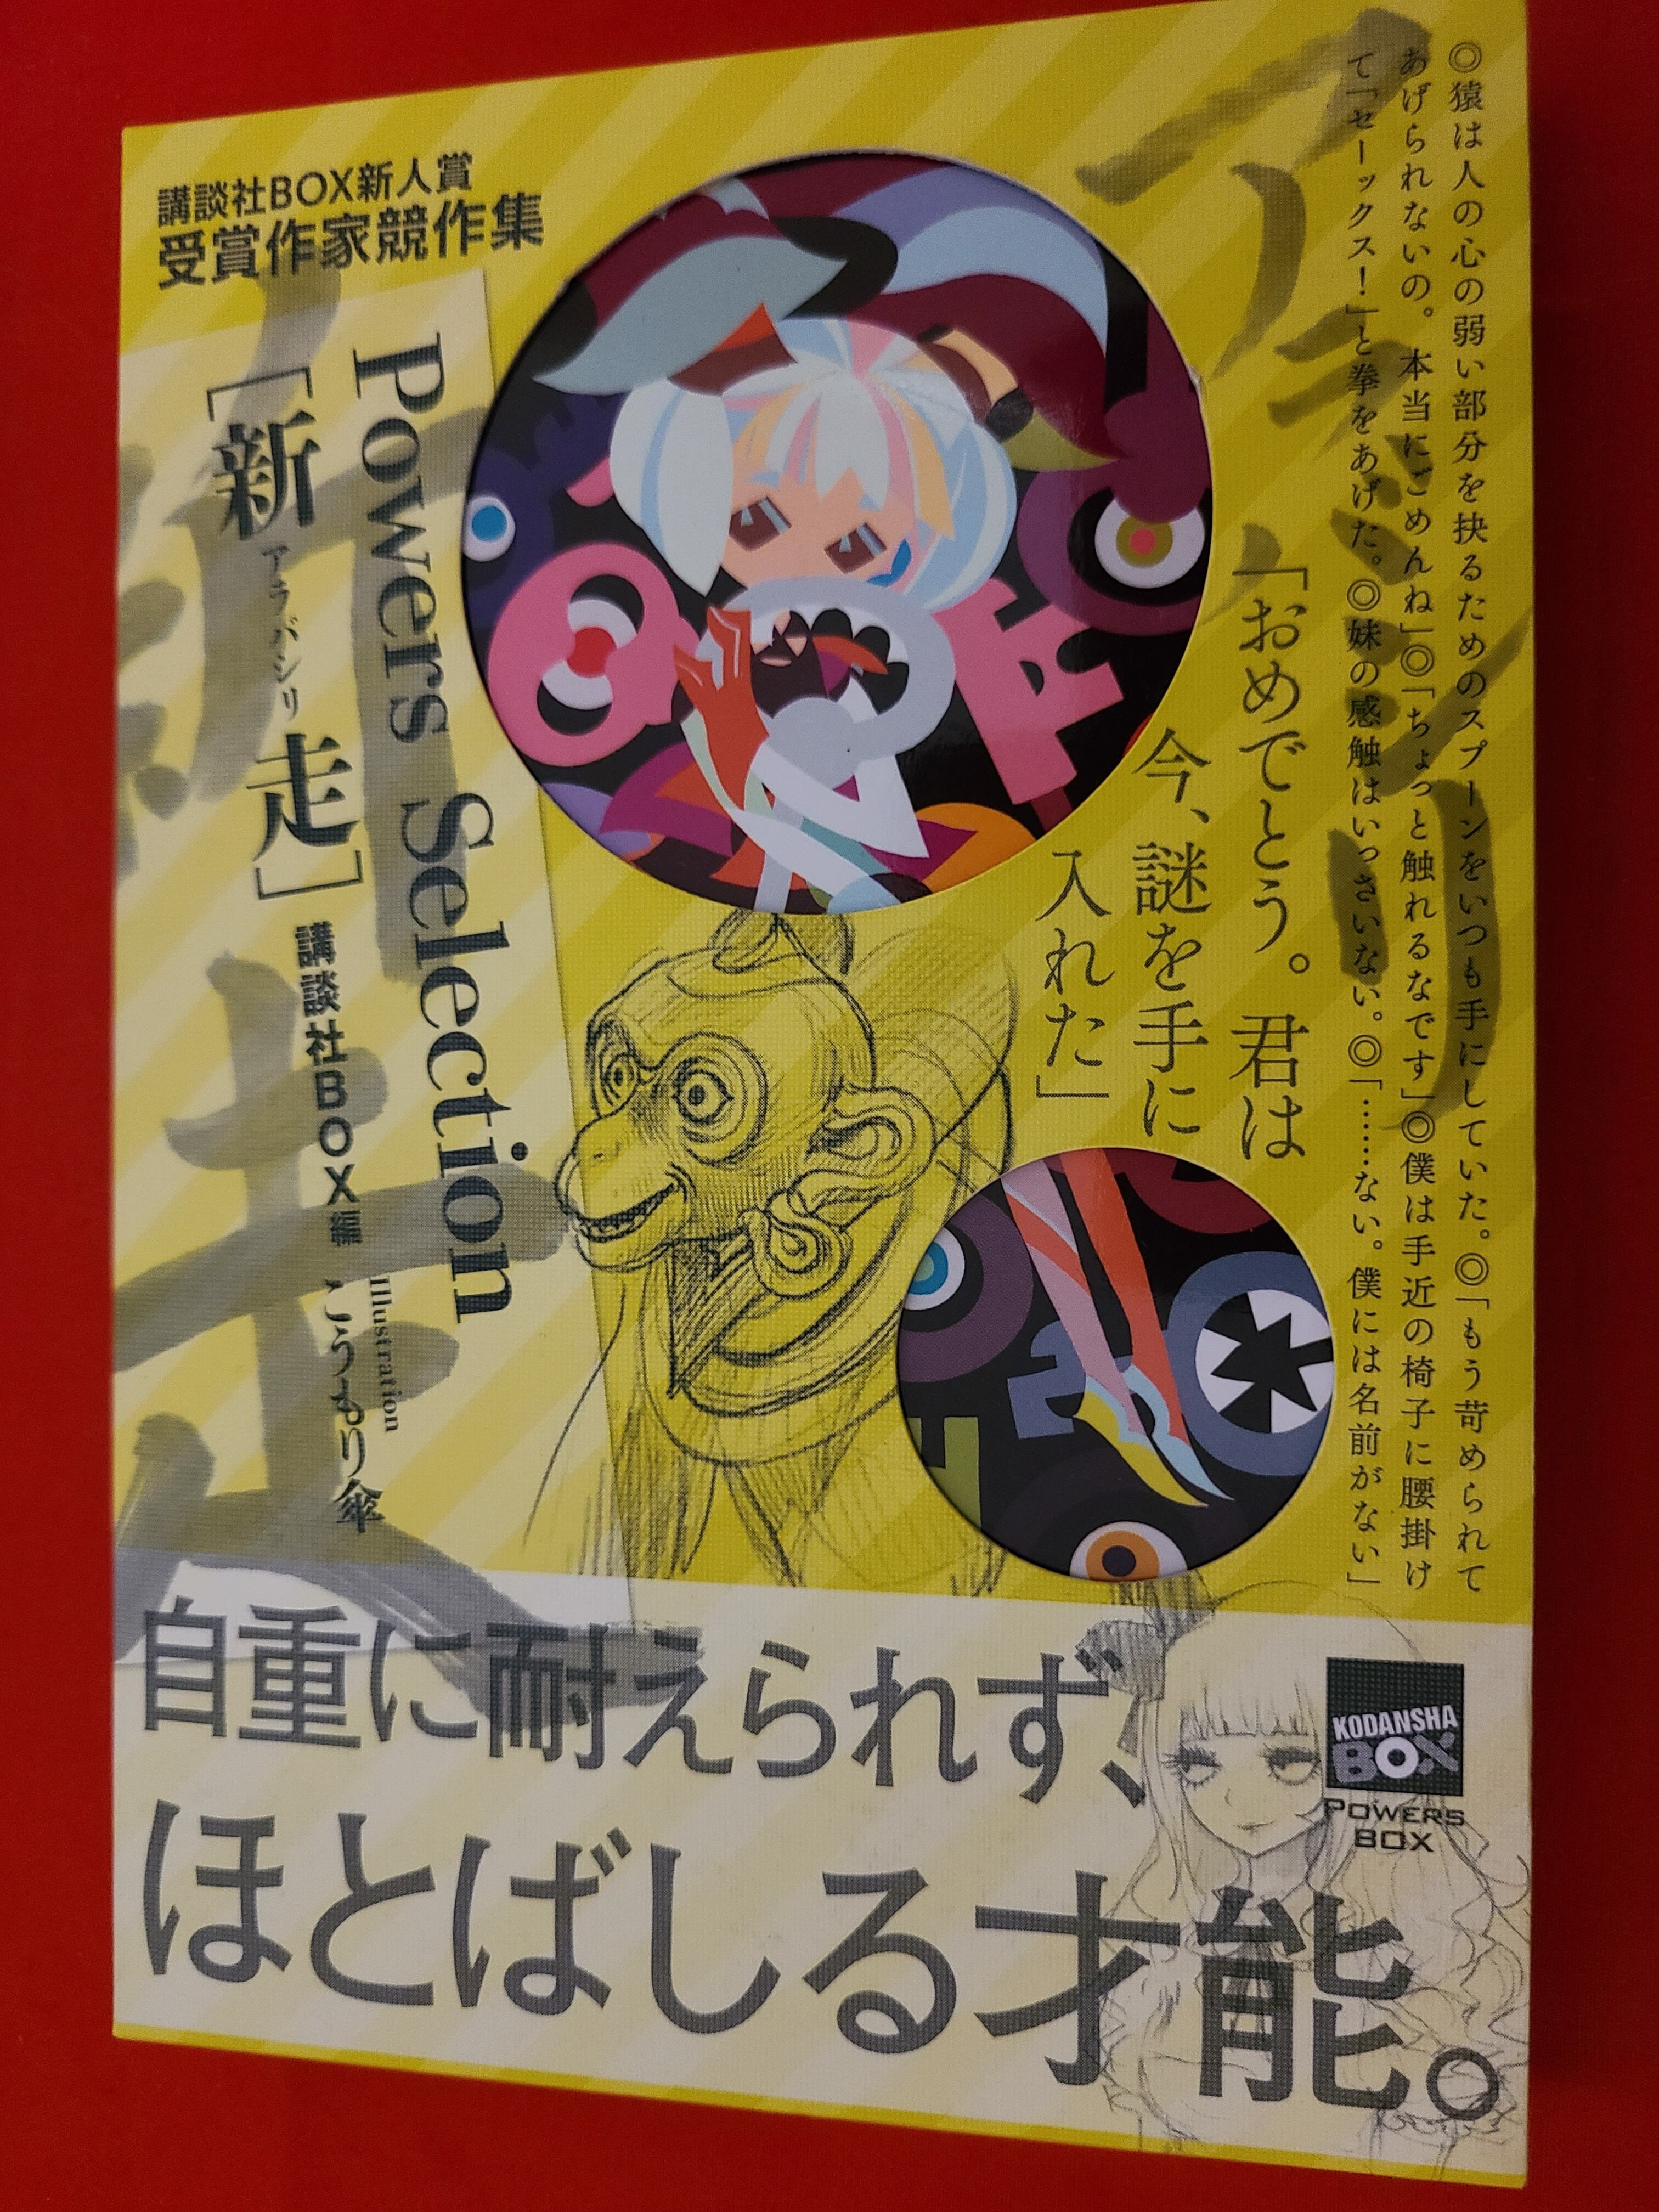 講談社BOX新人賞
受賞作家競作集
◎猿は人の心の弱い部分を抉るためのスプーンをいつも手にしていた。◎「もう苛められて
あげられないの。本当にごめんね」◎「ちょっと触れるなです」◎僕は手近の椅子に腰掛け
て「セーックス!」と拳をあげた。◎妹の感触はいっさいない。◎「……ない。僕には名前がない」
アラバシリ
「おめでとう。君は
今、謎を手に
入れた」
Powers Selection
[新走]
アラバシリ
講談社BOX編
Illustration
こうもり傘
新走
自重に耐えられず、
ほとばしる才能。
KODANSHA
BOX
POWERS
BOX